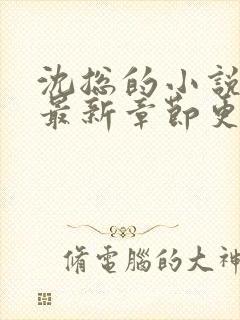 沈總的小說
最新章節更
脩電腦的大神